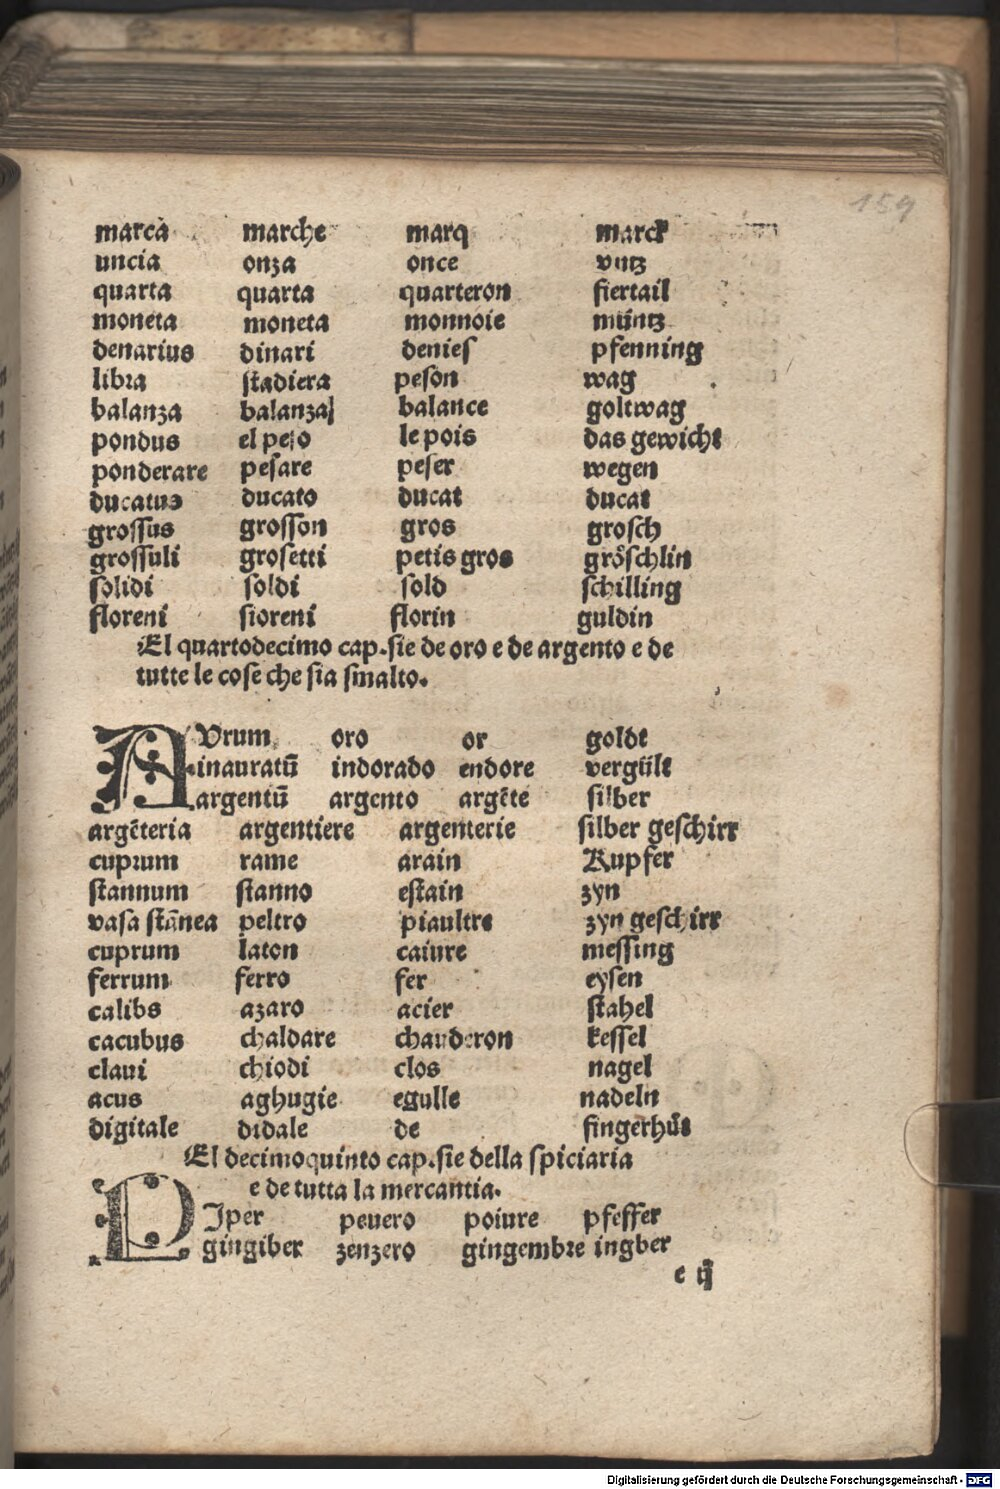 159
marca marche marq marck
uncia onza once vntz
quarta quarta quarteron fiertail
moneta moneta monnoie müntz
denarius dinari denieſ pfenning
libra ſtadiera peſon wag
balanza balanza balance goltwag
pondus el peſo le pois das gewicht
ponderare peſare peſer wegen
ducatus ducato ducat ducat
groſſus groſſon gros groſch
groſſuli groſetti petis gros gröſchlin
ſolidi ſoldi ſold ſchilling
floreni fioreni florin guldin
El quartodecimo cap.ſie de oro e de argento e de
tutte le coſe che ſia ſmalto.
AVrum oro or goldt
inauratū indorado endore vergült
argentū argento argēte ſilber
argēteria argentiere argenterie ſilber geſchirr
cuprum rame arain Kupfer
ſtannum ſtanno eſtain zyn
vaſa ſtānea peltro piaultre zyn geſchirr
cuprum laton caiure meſſing
ferrum ferro fer eyſen
calibs azaro acier ſtahel
cacubus chaldare chauderon keſſel
claui chiodi clos nagel
acus aghugie egulle nadeln
digitale didale de fingerhůt
El decimoquinto cap.ſie della ſpiciaria
e de tutta la mercantia.
PIper peuero poiure pfeffer
gingiber zenzero gingembre ingber
e ij
Digitalisierung gefördert durch die Deutsche Forschungsgemeinschaft - DFG